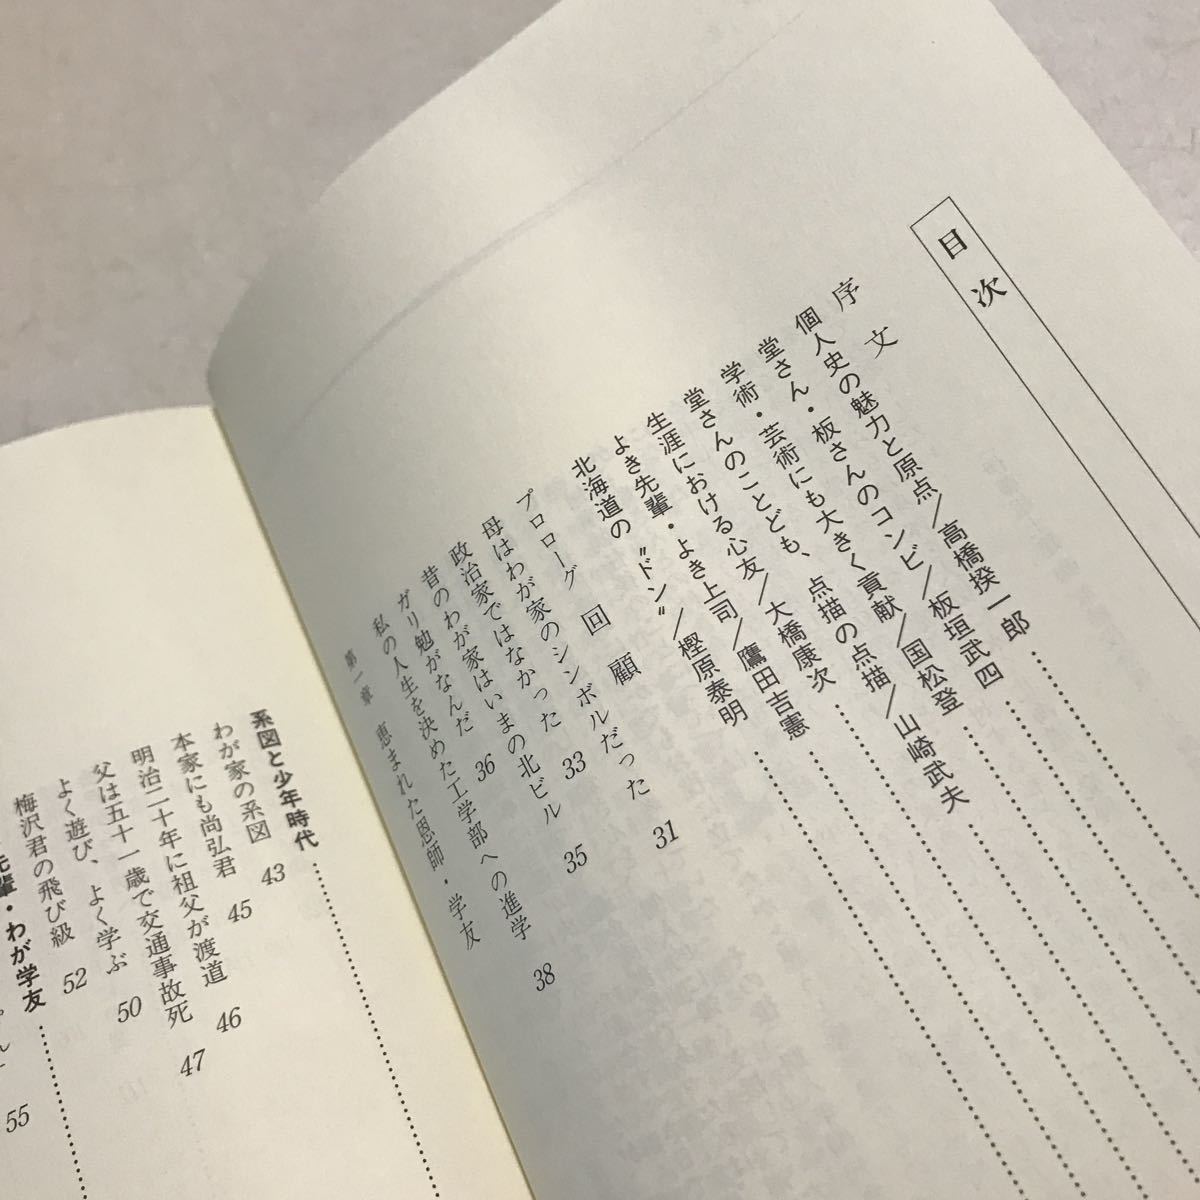 目次
序文
個人史の魅力と原点／高橋揆一郎
堂さん・板さんのコンビ／板垣武四
学術・芸術にも大きく貢献／国松登
堂さんのことども、点描の点描／山崎武夫
生涯における心友／大橋康次
よき先輩・よき上司／鷹田吉憲
北海道の〝ドン〟／樫原泰明
プロローグ 回顧
母はわが家のシンボルだった 31
政治家ではなかった 33
昔のわが家はいまの北ビル 35
ガリ勉がなんだ 36
私の人生を決めた工学部への進学 38
第一章 恵まれた恩師・学友
系図と少年時代
わが家の系図 43
本家にも尚弘君 45
明治二十年に祖父が渡道 46
父は五十一歳で交通事故死 47
よく遊び、よく学ぶ 50
梅沢君の飛び級 52
先輩・わが学友
55